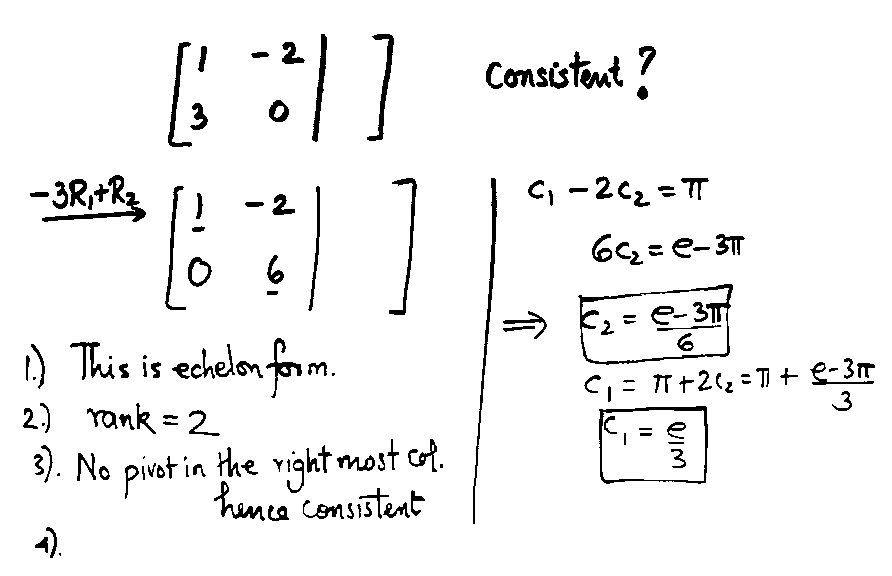 [1 -2 | ] Consistent?
[3 0 | ]
-3R₁+R₂ → [1 -2 | ]
[0 6 | ]
1.) This is echelon form.
2.) rank = 2
3). No pivot in the right most col.
hence consistent
4).
c₁ - 2c₂ = π
6c₂ = e-3π
⇒ c₂ = (e-3π)/6
c₁ = π+2c₂ = π + (e-3π)/3
c₁ = e/3